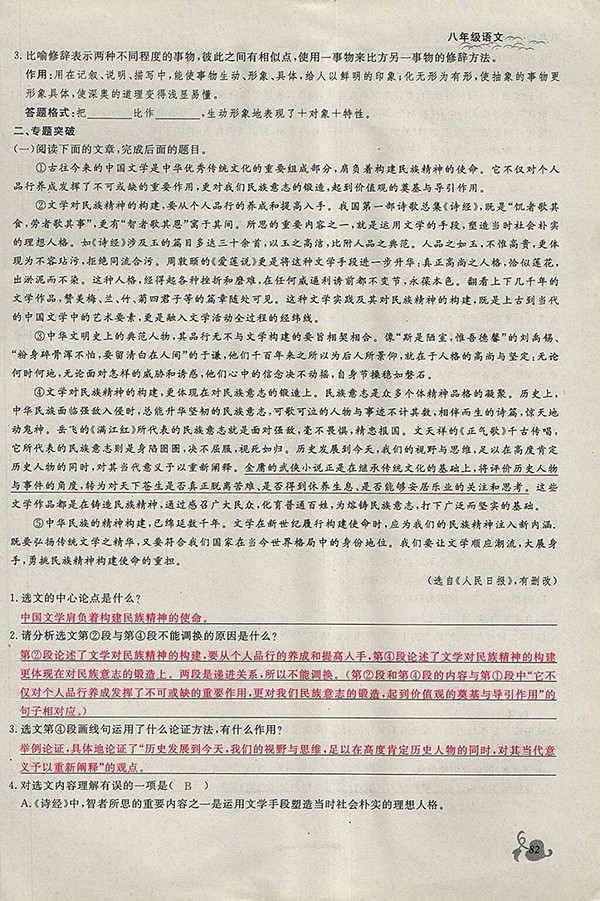 八年级语文
3. 比喻修辞表示两种不同程度的事物,彼此之间有相似点,使用一事物来比方另一事物的修辞方法。
作用:用在记叙、说明、描写中,能使事物生动、形象、具体,给人以鲜明的印象;化无形为有形,使抽象的事物更
形象具体,使深奥的道理变得浅显易懂。
答题格式:把________比作________,生动形象地表现了+对象+特性。
二、专题突破
(一)阅读下面的文章,完成后面的题目。
①古往今来的中国文学是中华优秀传统文化的重要组成部分,肩负着构建民族精神的使命。它不仅对个人
品行养成发挥了不可或缺的重要作用,更对我们民族意志的锻造,起到价值观的奠基与导引作用。
②文学对民族精神的构建,要从个人品行的养成和提高入手。我国第一部诗歌总集《诗经》,既是“饥者歌其
食,劳者歌其事”,更有“智者歌其思”寓于其间。所思的重要内容之一,就是运用文学的手段,塑造当时社会朴实
的理想人格。如《诗经》涉及玉的篇目多达三十余首,以玉之高洁,比附人品之典范。人品之如玉,不惟高贵,更体
现为不容玷污,拒绝同流合污。周敦颐的《爱莲说》更是将这种文学手段进一步升华:真正高尚之人格,恰似莲花,
出淤泥而不染。这种人格,经得起各种挫折和磨难,在任何威逼利诱前都不变节,永葆本色。翻看上下几千年的
文学作品,赞美梅、兰、竹、菊四君子等的篇章随处可见。这种文学实践及其对民族精神的构建,既是上古到当代
的中国文学中的艺术要素,更是融入文学活动全过程的经纬线。
③中华文明史上的典范人物,其品行无不与文学构建的要旨相契相合。像“斯是陋室,惟吾德馨”的刘禹锡、
“粉身碎骨浑不怕,要留清白在人间”的于谦,他们千百年来之所以为后人所景仰,就在于人格的高尚与坚定;无论
何时何地,无论面对怎样的威胁和诱惑,他们心中的信念决不动摇,自身节操稳如磐石。
④文学对民族精神的构建,更体现在对民族意志的锻造上。民族意志是众多个体精神品格的凝聚。历史上,
中华民族面临强敌入侵时,总能升华坚韧的民族意志,可歌可泣的人物与事迹不计其数,相伴而生的诗篇,惊天地
动鬼神。岳飞的《满江红》所代表的民族意志就是面对强敌,毫不畏惧,精忠报国。文天祥的《正气歌》千古传唱,
它所代表的民族意志则是身陷囹圄,决不屈服,视死如归。历史发展到今天,我们的视野与思维,足以在高度肯定
历史人物的同时,对其当代意义予以重新阐释。金庸的武侠小说正是在继承传统文化的基础上,将评价历史人物
与事件的角度,转为对天下苍生是否真正脱离苦难、是否得到休养生息、是否能够安居乐业的关注和思考。这些
文学作品都是在铸造民族精神,通过感召广大民众,化育普通百姓,为熔铸民族意志,打下广泛而坚实的基础。
⑤中华民族的精神构建,已绵延数千年。文学在新世纪履行构建使命时,应为我们的民族精神注入新内涵,
既要弘扬传统文学之精华,又要符合我们国家在当今世界格局中的身份地位。我们要让文学顺应潮流,大展身
手,勇挑民族精神构建使命的重担。
(选自《人民日报》,有删改)
1. 选文的中心论点是什么?
中国文学肩负着构建民族精神的使命。
2. 请分析选文第②段与第④段不能调换的原因是什么?
第②段论述了文学对民族精神的构建,要从个人品行的养成和提高入手,第④段论述了文学对民族精神的构建
更体现在对民族意志的锻造上。两段是递进关系,所以不能调换。(第②段和第④段的内容与第①段中“它不
仅对个人品行养成发挥了不可或缺的重要作用,更对我们民族意志的锻造,起到价值观的奠基与导引作用”的
句子相对应。)
3. 选文第④段画线句运用了什么论证方法,有什么作用?
举例论证,具体地论证了“历史发展到今天,我们的视野与思维,足以在高度肯定历史人物的同时,对其当代意
义予以重新阐释”的观点。
4. 对选文内容理解有误的一项是( B )
A.《诗经》中,智者所思的重要内容之一是运用文学手段塑造当时社会朴实的理想人格。
82